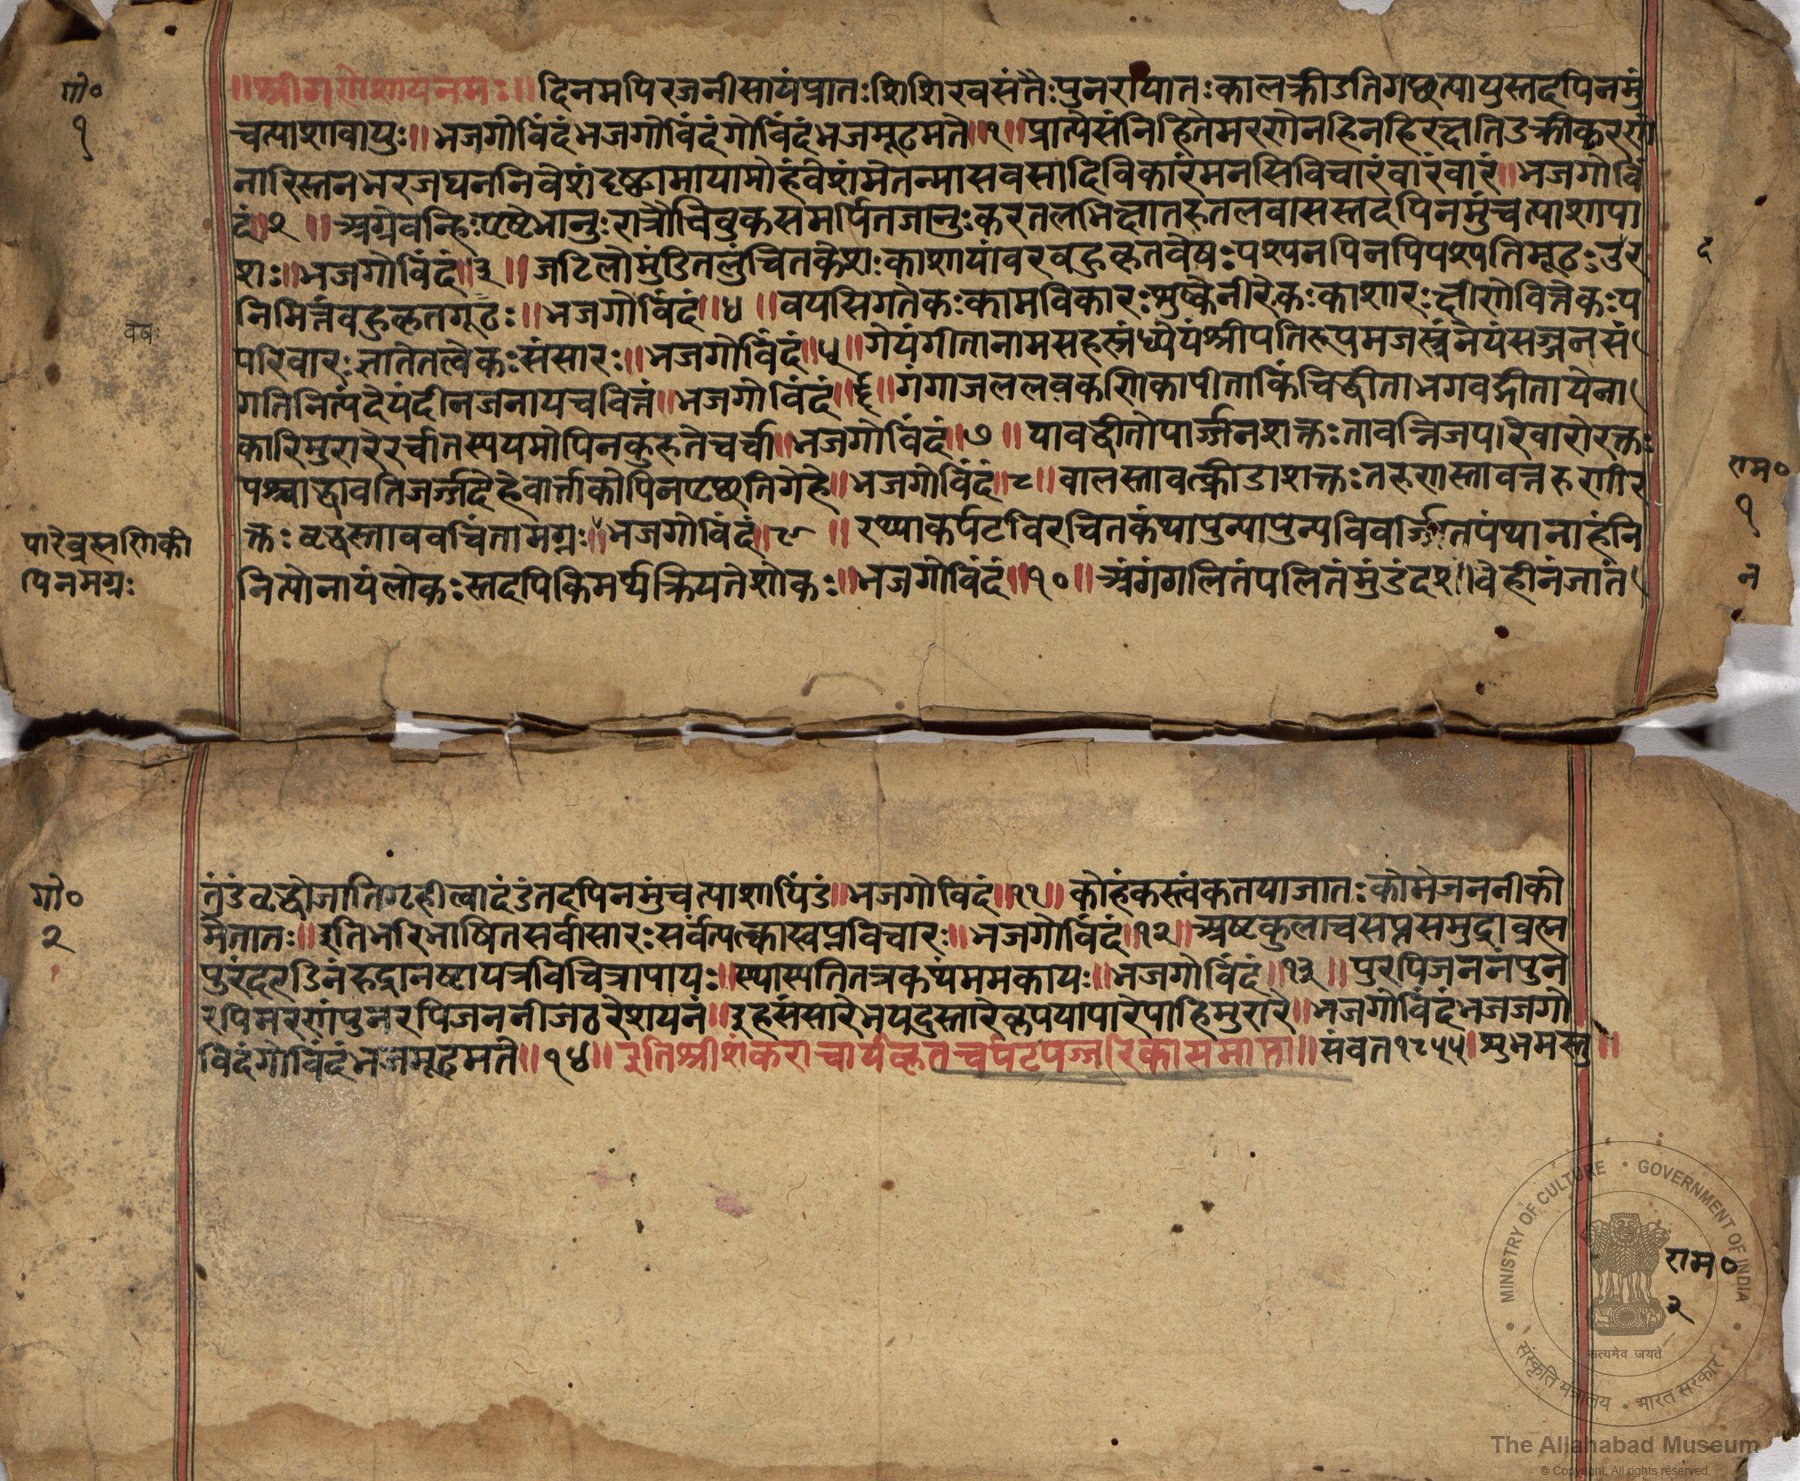 ॥श्रीगणेशायनमः॥दिनमपिरजनीसायंप्रातःशिशिरवसंतैःपुनरायातःकालक्रीडतिगछत्यायुस्तदपिनमुं
गो०
१
चत्याशावायुः॥भजगोविंदंभजगोविंदंगोविंदंभजमूढमते॥१॥प्राप्तेसंनिहितेमरणेनहिनहिरक्षतिडुक्रीकृरणे
नारिस्तनभरजघननिवेशंदृष्ट्वामायामोहंवेशंमेतन्मासवसादिविकारंमनसिविचारंवारंवारं॥भजगोविं
दं॥२॥अग्रेवन्हिःपृष्टेभानुःरात्रौचिवुकसमर्पितजानुःकरतलभिक्षातरुतलवासस्तदपिनमुंचत्याशापा
शः॥भजगोविंदं॥३॥जटिलोमुंडितलुंचितकेशःकाशायांवरवहुकृतवेषःपश्यनपिनपिपश्यतिमूढःउर
द
निमित्तंवहुकृतगूढः॥भजगोविंदं॥४॥वयसिगतेकःकामविकारःशुष्कैनीरेकःकाशारःक्षीणेवित्तेकःप
वेषः
परिवारःज्ञातेतत्वेकःसंसारः॥भजगोविंदं॥५॥गेयंगीतानामसहस्रंध्येयंश्रीपतिरूपमजस्त्रंनेयंसज्जनसं
गतिनित्यंदेयंदीनजनायचवित्तं॥भजगोविंदं॥६॥गंगाजललवकणिकापीताकिंचिद्धीताभगवद्गीतायेना
कारिमुरारेरर्चातस्ययमोपिनकुरुतेचर्चा॥भजगोविंदं॥७॥यावद्वीतोपार्ज्जनशक्तःतावन्निजपरिवारोरक्तः
पश्चाद्धावतिजर्ज्जदेहेवार्त्ताकोपिनपृछतिगेहे॥भजगोविंदं॥८॥वालस्तावत्क्रीडाशक्तःतरुणस्तावत्तरुणीर
राम०
१
क्तःवृद्धस्तावत्चिंतामग्नः॥भजगोविंदं॥९॥रथ्याकर्पटविरचितकंथापुन्यापुन्यविवर्ज्जितपंथानाहंनि
पारेव्रह्मणिको
पिनमग्नः
नित्योनायंलोकःस्तदपिकिमर्थंक्रियतेशोकः॥भजगोविंदं॥१०॥अंगंगलितंपलितंमुंडंदशविहीनंजातं
न
तुंडंवृद्धोजातिगृहीत्वादंडंतदपिनमुंचत्याशापिंडं॥भजगोविंदं॥११॥कोहंकस्त्वंकेतयाजातःकोमेजननीको
गो०
२
मेतातः॥इतिभरिभाषितसर्वासारःसर्वंत्यत्काखप्नविचारः॥भजगोविंदं॥१२॥अष्टकुलाचसप्तसमुद्राव्रह्म
पुरंदरदिनंरुद्रानष्टायत्रविचित्रापायः॥स्थास्यतितत्रकथंममकायः॥भजगोविंदं॥१३॥पुरपिजननंपुन
रपिमरणंपुनरपिजननीजेठरेशयनं॥इहसंसारेभयदुस्तारेकृपयापारेपाहिमुरारे॥भजगोविंदंभजजगो
विदंगोविंदंभजमूढमते॥१४॥इतिश्रीशंकराचार्यकृतचर्पटपज्जरिकासमाप्ता॥संवत१८५५।शुभमस्तु॥
राम०
२
MINISTRY OF CULTURE • GOVERNMENT OF INDIA
सत्यमेव जयते
संस्कृति मंत्रालय • भारत सरकार
The Allahabad Museum
© Copyright, All rights reserved.